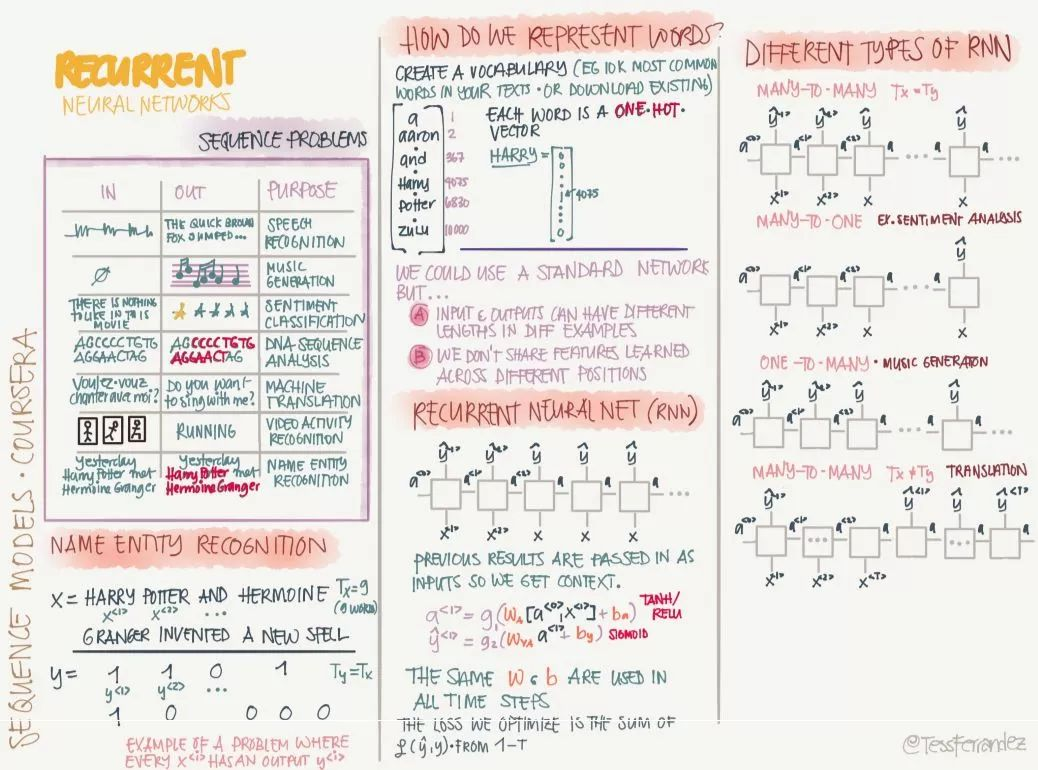 RECURRENT
NEURAL NETWORKS
SEQUENCE PROBLEMS
IN OUT PURPOSE
THE QUICK BROWN
FOX JUMPED...
SPEECH
RECOGNITION
∅
MUSIC
GENERATION
THERE IS NOTHING
TO LIKE IN THIS
MOVIE
SENTIMENT
CLASSIFICATION
AGCCCCTGTG
AGGAACTAG
AGCCCCTGTG
AGGAACTAG
DNA-SEQUENCE
ANALYSIS
Voulez-vouz
chanter avec moi?
Do you want
to sing with me?
MACHINE
TRANSLATION
RUNNING
VIDEO ACTIVITY
RECOGNITION
Yesterday
Harry Potter met
Hermoine Granger
Yesterday
Harry Potter met
Hermoine Granger
NAME ENTITY
RECOGNITION
SEQUENCE MODELS · COURSERA
NAME ENTITY RECOGNITION
X = HARRY POTTER AND HERMOINE Tx=9
x<1> x<2> ... (9 WORDS)
GRANGER INVENTED A NEW SPELL
y = 1 1 0 1 Ty=Tx
y<1> y<2> ...
1 0 0 0 0
EXAMPLE OF A PROBLEM WHERE
EVERY X<i> HAS AN OUTPUT y<i>
HOW DO WE REPRESENT WORDS?
CREATE A VOCABULARY (EG 10K MOST COMMON
WORDS IN YOUR TEXTS · OR DOWNLOAD EXISTING)
a 1
aaron 2
and 367
Harry 4075
Potter 6830
zulu 10000
EACH WORD IS A ONE·HOT·
VECTOR
HARRY =
0
0
1
0
4075
WE COULD USE A STANDARD NETWORK
BUT...
A INPUT & OUTPUTS CAN HAVE DIFFERENT
LENGTHS IN DIFF EXAMPLES
B WE DON'T SHARE FEATURES LEARNED
ACROSS DIFFERENT POSITIONS
RECURRENT NEURAL NET (RNN)
ŷ<1> ŷ ŷ ŷ ŷ
a<0> a<1> a<2> a a a ...
x<1> x<2> x x x
PREVIOUS RESULTS ARE PASSED IN AS
INPUTS SO WE GET CONTEXT.
a<1> = g₁(Wa[a<0>,x<1>] + ba) TANH/
RELU
ŷ<1> = g₂(Wya a<1> + by) SIGMOID
THE SAME W & b ARE USED IN
ALL TIME STEPS
THE LOSS WE OPTIMIZE IS THE SUM OF
ℒ(ŷ,y)·FROM 1-T
DIFFERENT TYPES OF RNN
MANY-TO-MANY Tx = Ty
ŷ<1> ŷ<2> ŷ ŷ
a<0> a<1> a<2> a ... a ...
x<1> x<2> x x
MANY-TO-ONE EX. SENTIMENT ANALYSIS
ŷ
a<0> a<1> a<2> a ... a
x<1> x<2> x x
ONE-TO-MANY · MUSIC GENERATION
ŷ<1> ŷ<2> ŷ ŷ
a<0> a<1> a<2> a ... a ...
MANY-TO-MANY Tx ≠ Ty TRANSLATION
ŷ<1> ŷ ŷ<T>
a<0> a<1> ... a<2> a a ... a
x<1> x<2> x<T>
@TessFerrandez